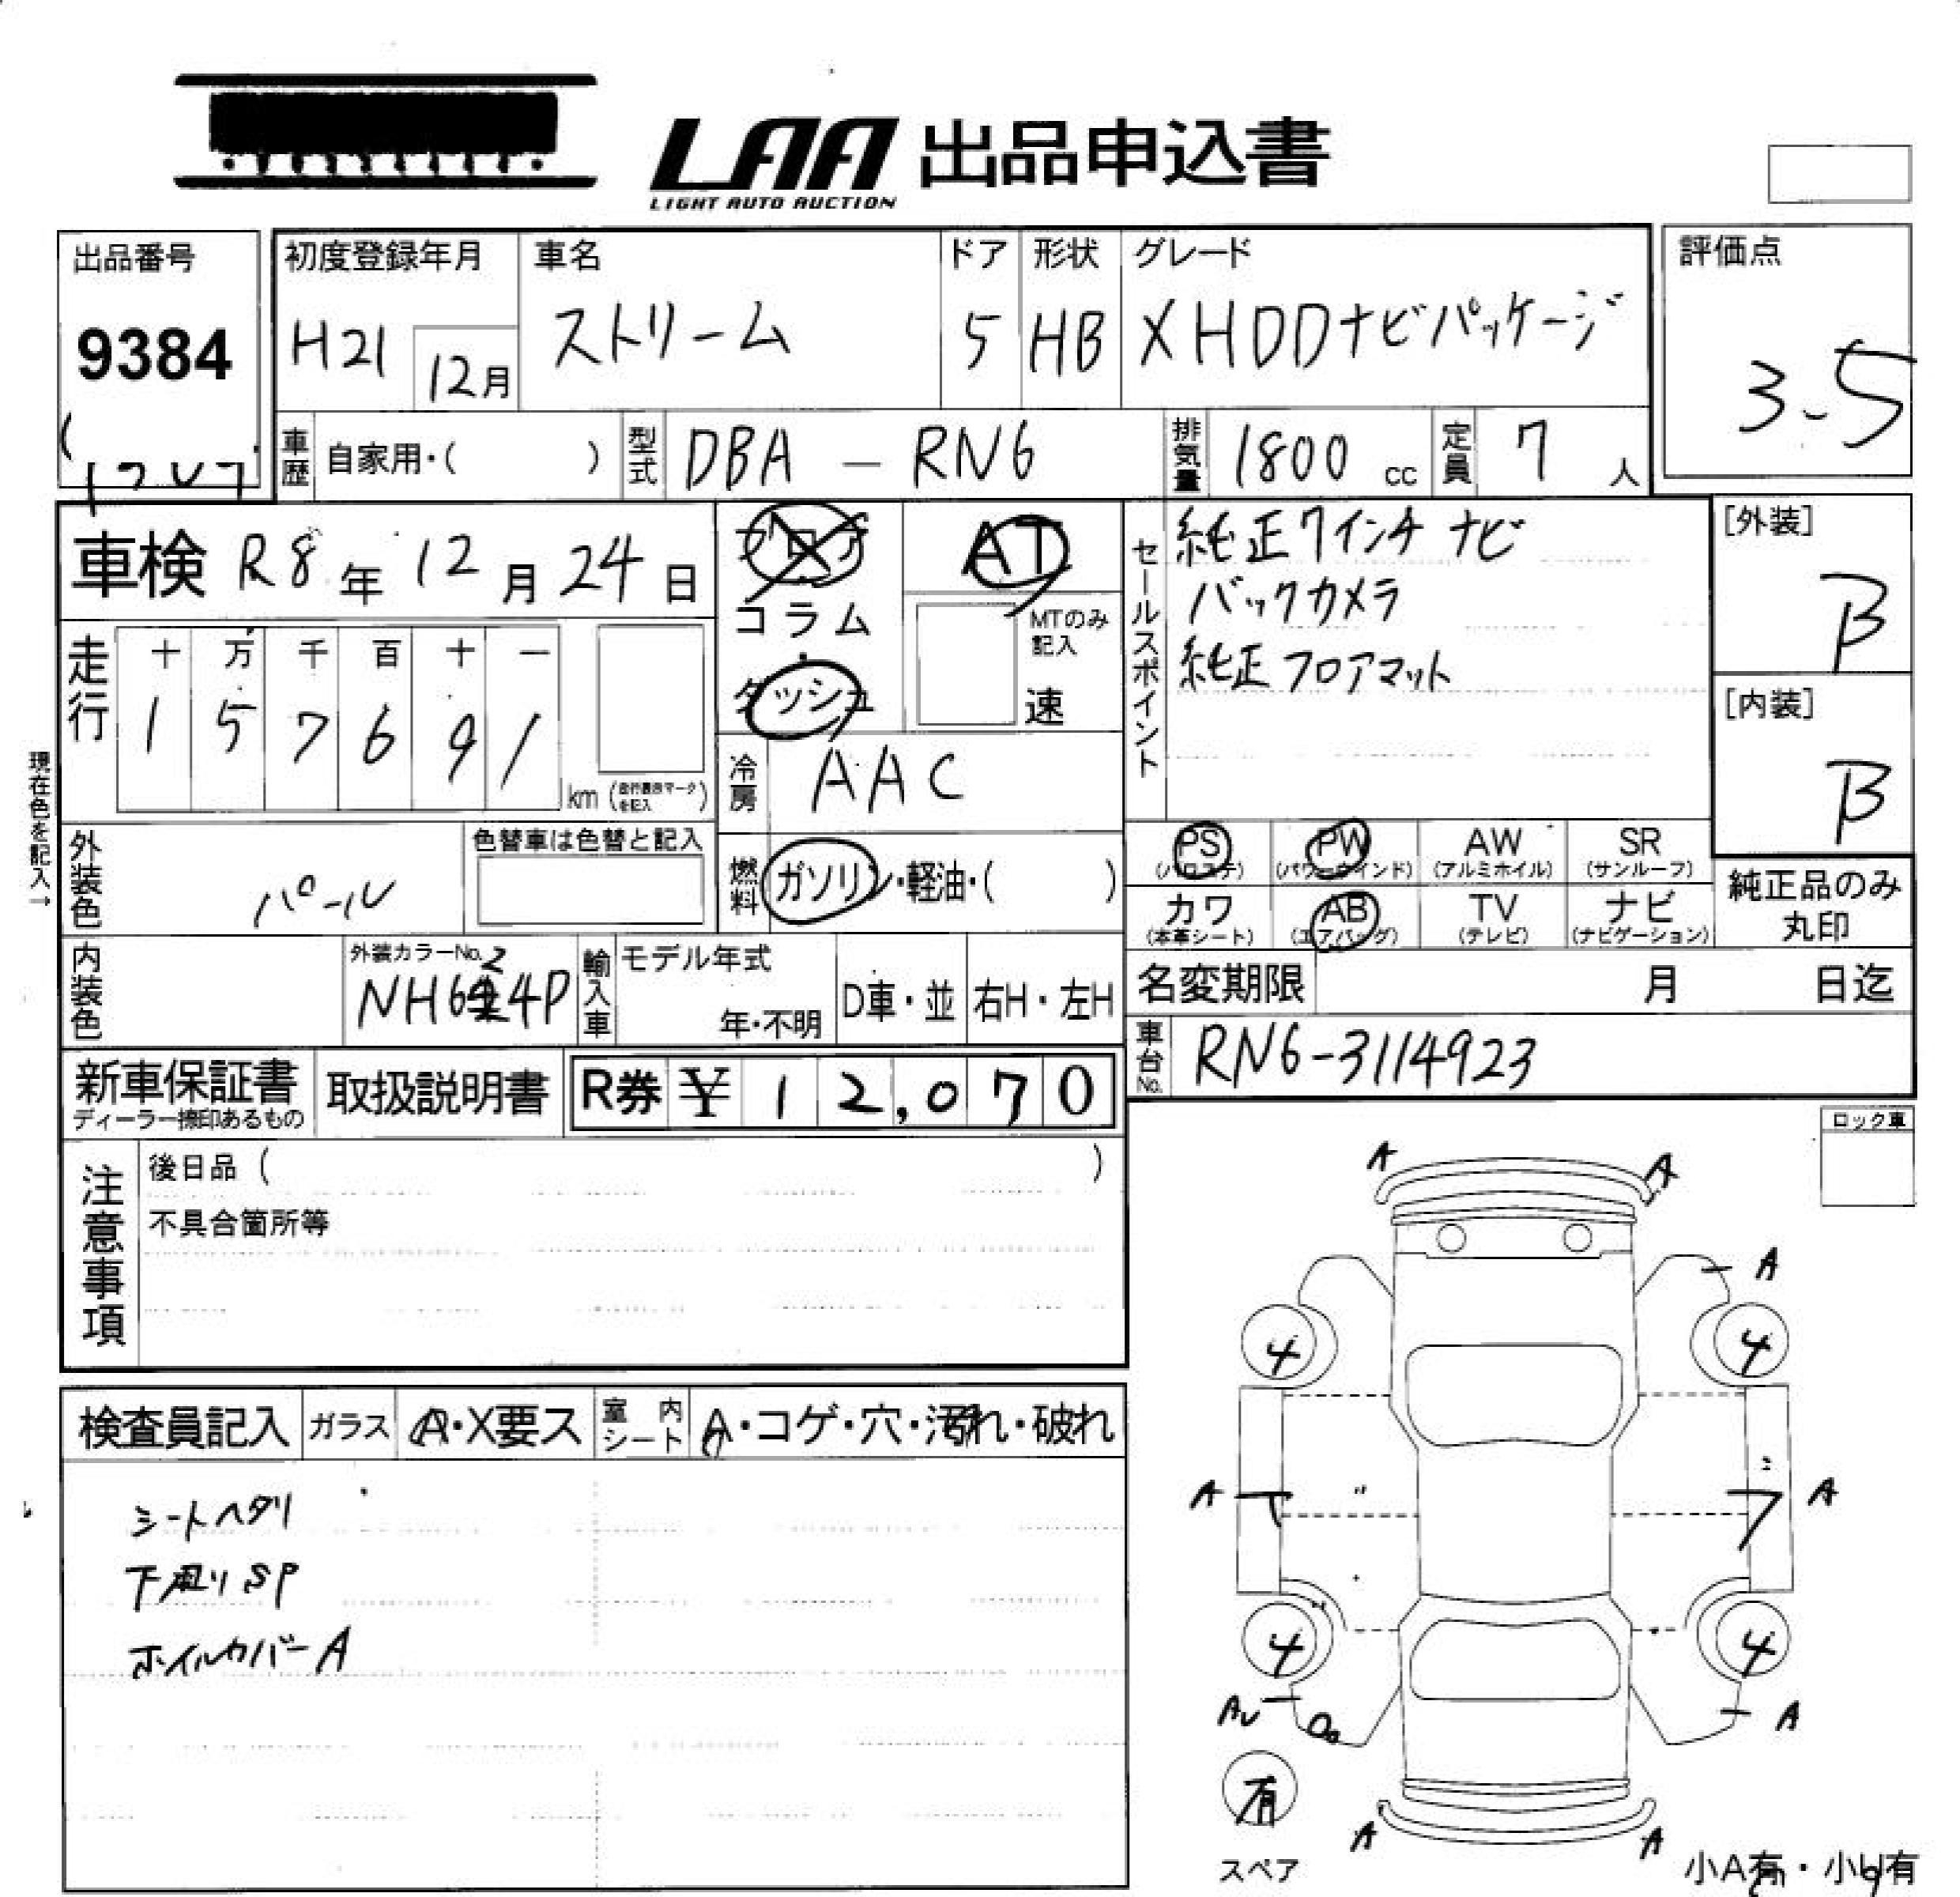 LAA 出品申込書
LIGHT AUTO AUCTION
出品番号
9384
初度登録年月
H21 12月
車名
ストリーム
ドア
5
形状
HB
グレード
X HDDナビパッケージ
評価点
3.5
車歴 自家用・( )
型式 DBA — RN6
排気量 1800 cc
定員 7 人
車検 R8年 12月 24日
フロア
コラム
・
ダッシュ
AT
MTのみ記入
速
セールスポイント
純正7インチ ナビ
バックカメラ
純正フロアマット
[外装]
B
[内装]
B
走行
十 万 千 百 十 一
1 5 7 6 9 1
km (走行表示マークを記入)
現在色を記入→
冷房 AAC
外装色 パール
色替車は色替と記入
燃料 ガソリン・軽油・( )
PS (パワステ) PW (パワーウインド) AW (アルミホイル) SR (サンルーフ)
カワ (本革シート) AB (エアバッグ) TV (テレビ) ナビ (ナビゲーション)
純正品のみ丸印
内装色
外装カラーNo.
NH624P
輸入車
モデル年式
年・不明
D車・並
右H・左H
名変期限 月 日迄
車台No. RN6-3114923
新車保証書
ディーラー捺印あるもの
取扱説明書
R券 ¥ 12,070
ロック車
注意事項
後日品 ( )
不具合箇所等
検査員記入 ガラス A・X要ス 室内シート A・コゲ・穴・汚れ・破れ
シートヘタリ
下廻りSP
ホイルカバーA
A A
A
4 4
A A
4 4
A A
有
スペア
A A
小A有・小U有